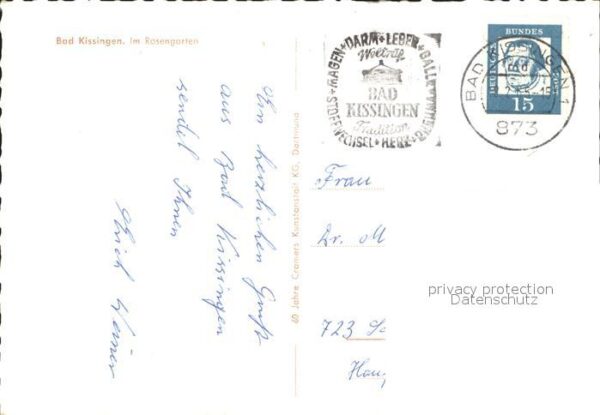 Bad Kissingen. Im Rosengarten
MAGEN + DARM + LEBER + GALLE
STOFFWECHSEL + HERZ +
Weltruf
BAD
KISSINGEN
Tradition
BUNDES
15
BAD KISSINGEN 1
873
Ein herzlichen Gruß
aus Bad Kissingen
sendet Ihnen
60 Jahre Cramers Kunstanstalt KG, Dortmund
Frau
Dr. M
723
privacy protection
Datenschutz